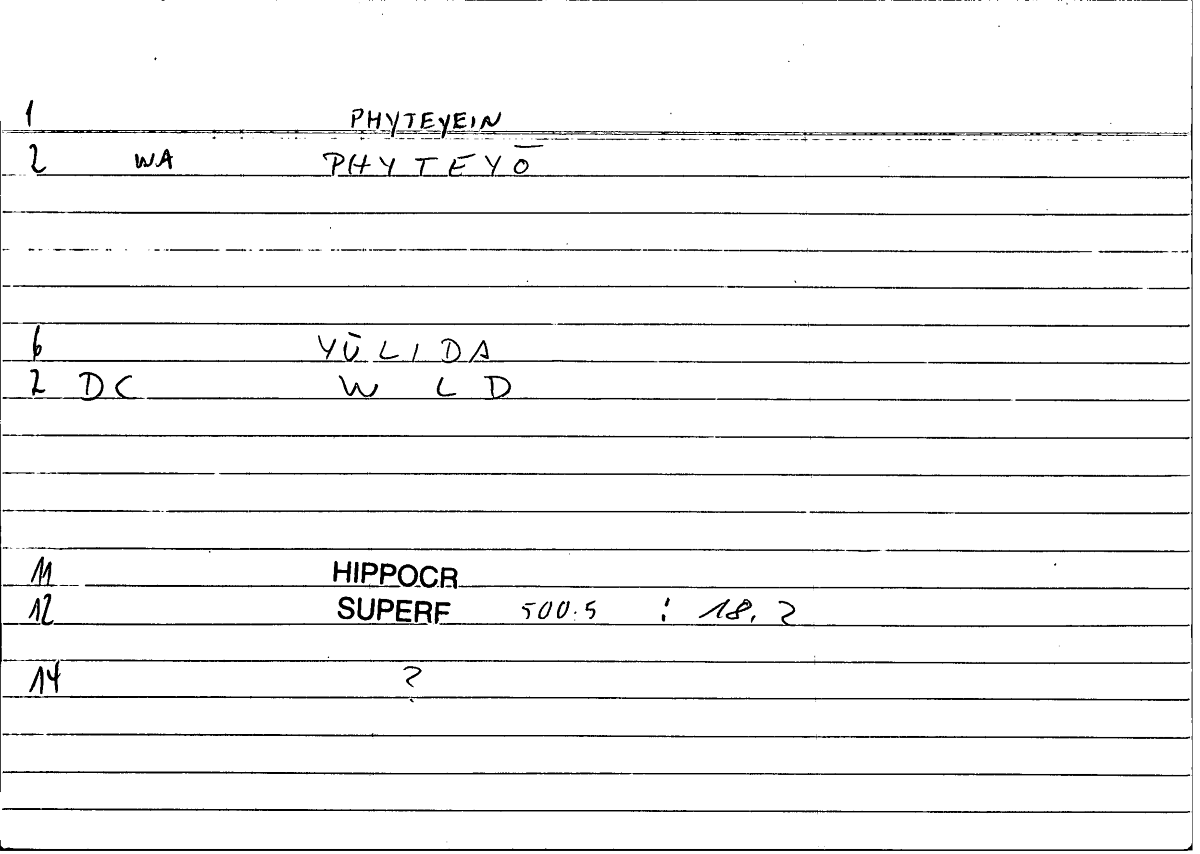 1 PHYTEYEIN
2 WA PHYTEYŌ
6 YŪLIDA
2 DC W L D
11 HIPPOCR
12 SUPERF 500.5 : 18.2
14 ?